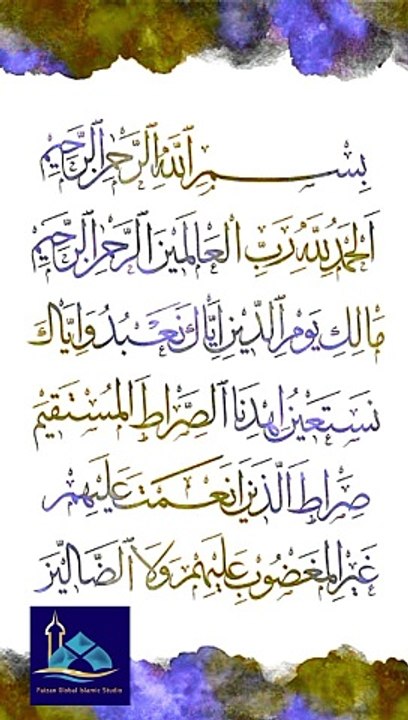 بِسْمِ ٱللَّهِ ٱلرَّحْمَٰنِ ٱلرَّحِيمِ
اَلْحَمْدُ لِلَّهِ رَبِّ الْعَالَمِيْنَ ٱلرَّحْمَٰنِ ٱلرَّحِيمِ
مَالِكِ يَوْمِ ٱلدِّينِ إِيَّاكَ نَعْبُدُ وَإِيَّاكَ
نَسْتَعِيْنُ اِهْدِنَا ٱلصِّرَاطَ الْمُسْتَقِيْمَ
صِرَاطَ الَّذِيْنَ اَنْعَمْتَ عَلَيْهِمْ
غَيْرِ الْمَغْضُوْبِ عَلَيْهِمْ وَلَا ٱلضَّالِّيْنَ
Faizan Global Islamic Studio